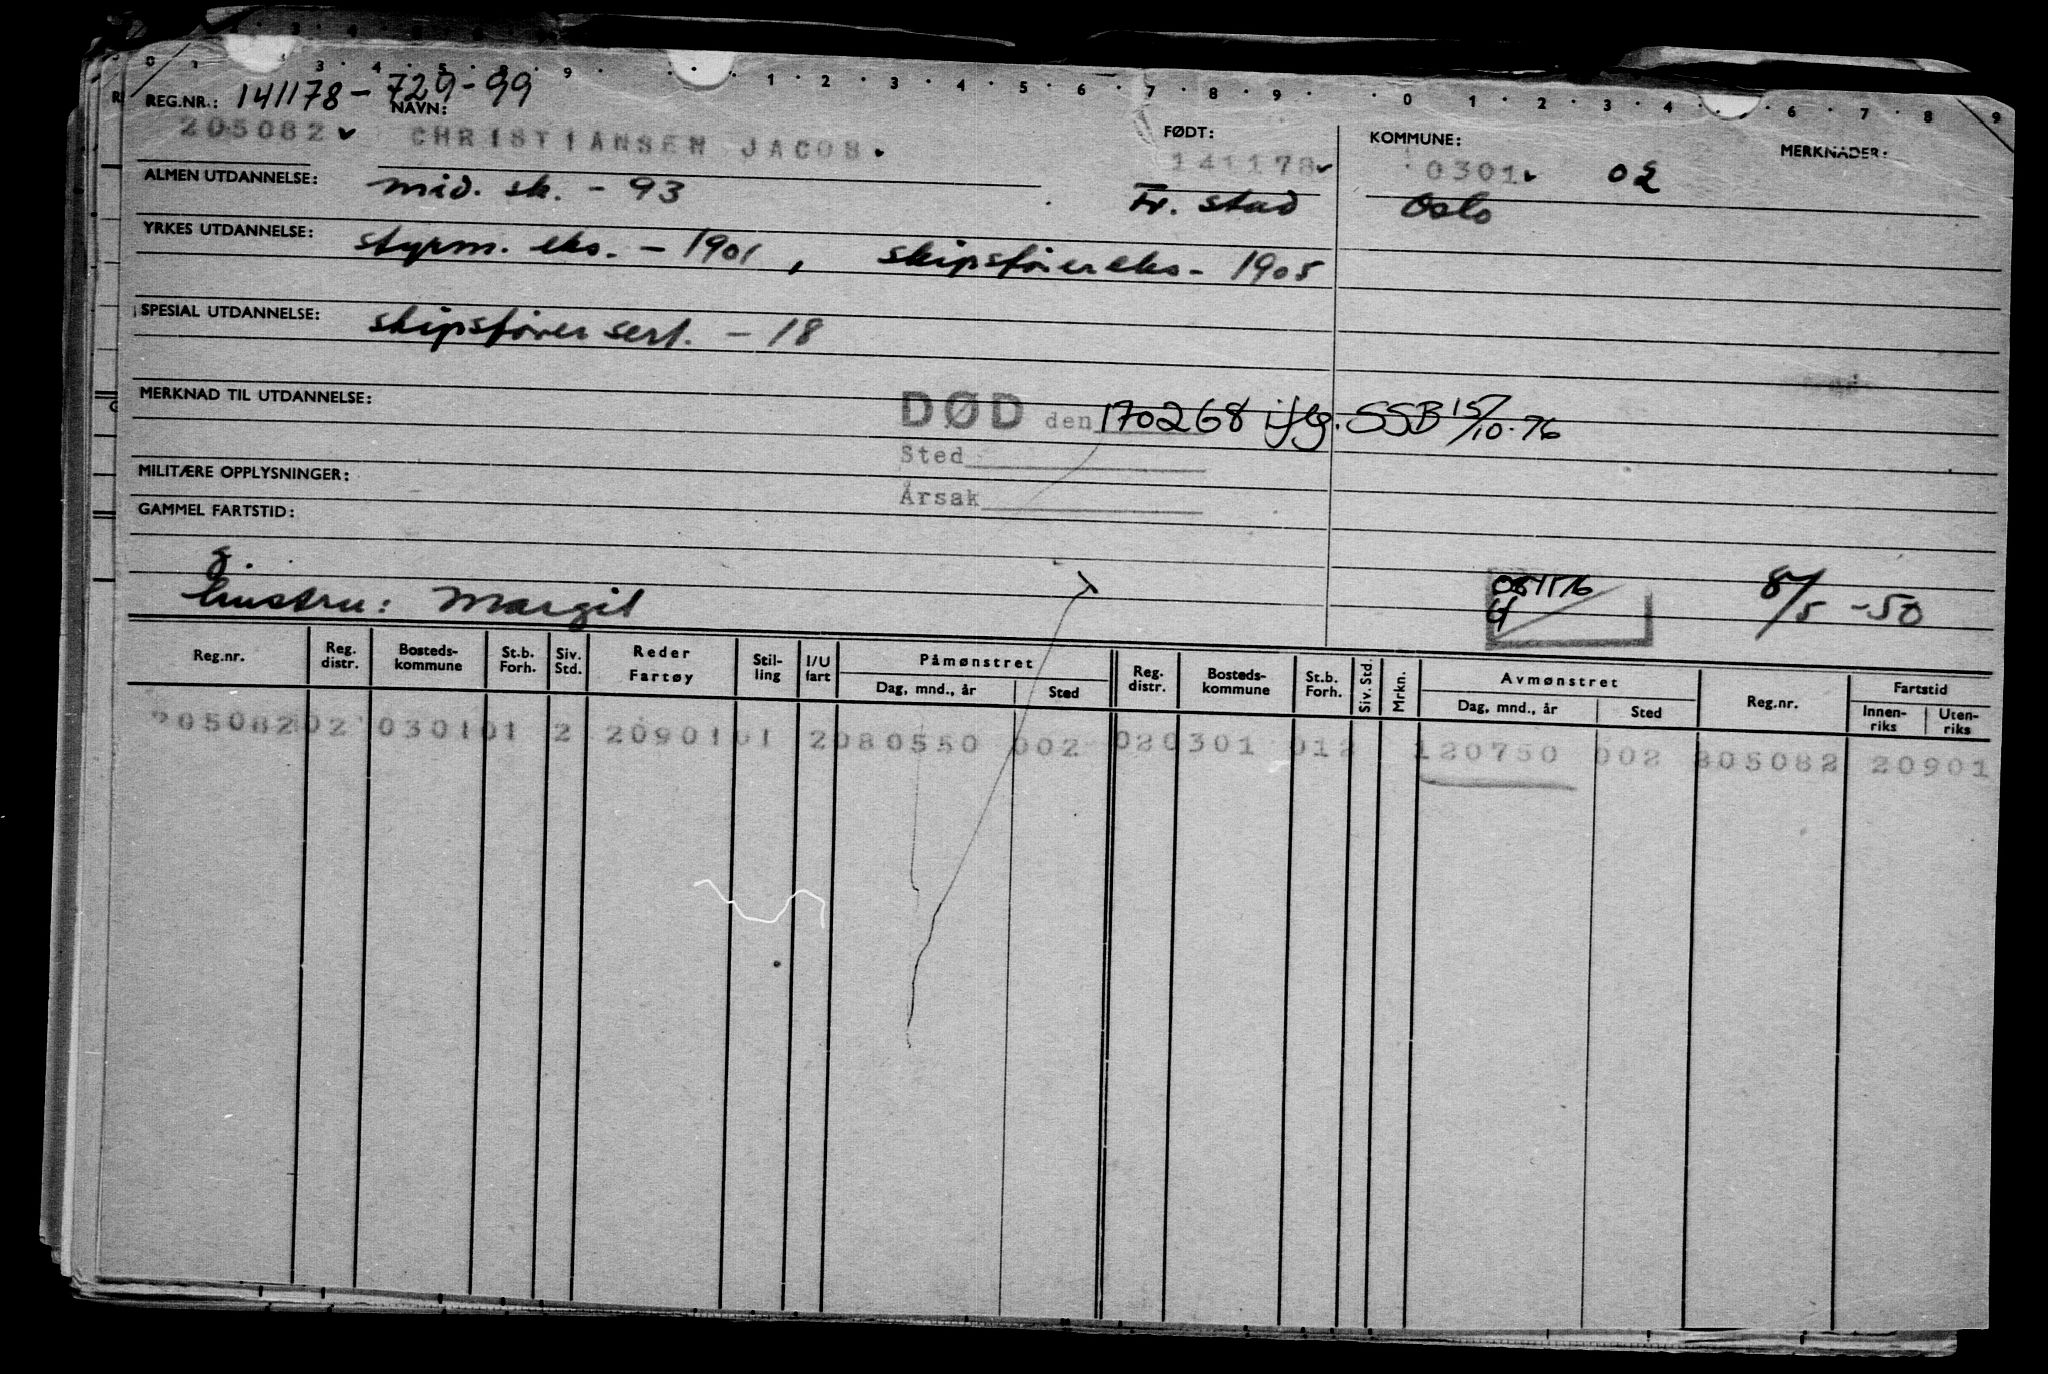 REG.NR.: 141178-729-99 NAVN:
205082 CHRISTIANSEN JACOB. FØDT: 141178 KOMMUNE: 0301 02 MERKNADER:
ALMEN UTDANNELSE: mid. sk. - 93 Fr. stad Oslo
YRKES UTDANNELSE: styrm. eks. - 1901, skipsföereks- 1905
SPESIAL UTDANNELSE: skipsförersert. - 18
MERKNAD TIL UTDANNELSE: DØD den 170268 iflg. SSB 15/10-76
Sted
MILITÆRE OPPLYSNINGER:
Årsak
GAMMEL FARTSTID:
g.
hustru: Margit 8/5 -50
Reg.nr. Reg. distr. Bosteds-kommune St.b. Forh. Siv. Std. Reder Fartøy Stil-ling I/U fart Påmønstret Dag, mnd., år Sted Reg. distr. Bosteds-kommune St.b. Forh. Siv. Std. Mrkn. Avmønstret Dag, mnd., år Sted Reg.nr. Fartstid Innen-riks Uten-riks
205082 02 0301 01 2 20901 01 2 080550 002 02 0301 012 120750 002 205082 20901